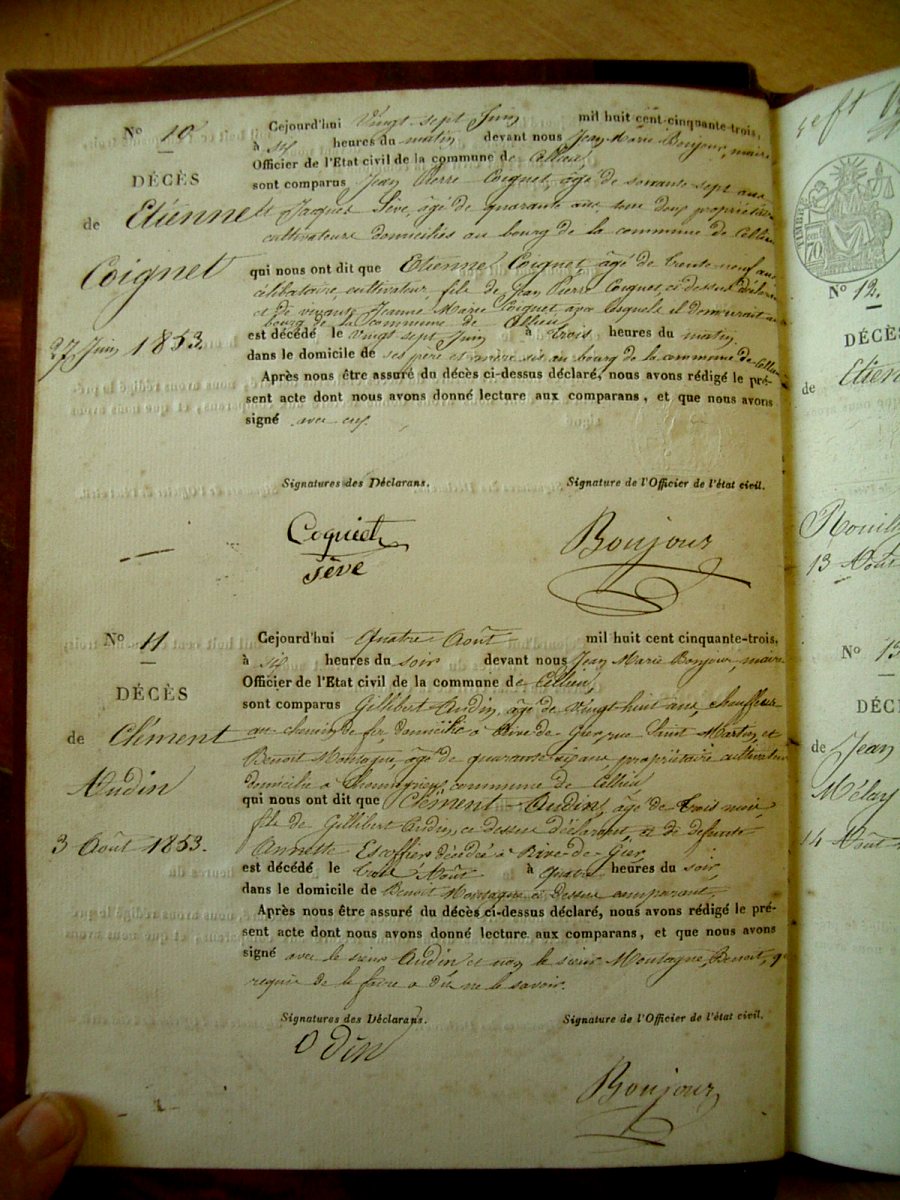 N° 10
DÉCÈS
de Etienne
Coignet
27 Juin 1853.
Cejourd'hui Vingt sept Juin mil huit cent cinquante-trois,
à six heures du matin devant nous Jean Marie Bonjour, maire
Officier de l'Etat civil de la commune de Cellieu
sont comparus Jean Pierre Coignet, âgé de soixante sept ans
et Jacques Sève, âgé de quarante ans, tous deux propriétaires
cultivateurs domiciliés au bourg de la commune de Cellieu
qui nous ont dit que Etienne Coignet, âgé de trente neuf ans
célibataire, cultivateur, fils de Jean Pierre Coignet ci dessus déclarant
et de vivante Jeanne Marie Coignet avec lesquels il demeurait au
bourg de la commune de Cellieu
est décédé le vingt sept Juin à trois heures du matin.
dans le domicile de ses père et mère sis au bourg de la commune de Cellieu
Après nous être assuré du décès ci-dessus déclaré, nous avons rédigé le pré-
sent acte dont nous avons donné lecture aux comparans, et que nous avons
signé avec eux.
Signatures des Déclarans. Signature de l'Officier de l'état civil.
Coignet Bonjour
Sève
N° 11
DÉCÈS
de Clément
Audin
3 Août 1853.
Cejourd'hui Quatre Août mil huit cent cinquante-trois,
à six heures du soir devant nous Jean Marie Bonjour, maire
Officier de l'Etat civil de la commune de Cellieu,
sont comparus Gillibert Audin, âgé de Vingt huit ans, chauffeur
au chemin de fer, domicilié à Rive de Gier, rue Saint Martin, et
Benoit Montagne âgé de quarante six ans, propriétaire cultivateur
domicilié à commune de Cellieu
qui nous ont dit que Clément Audin, âgé de trois mois,
fils de Gillibert Audin, ci dessus déclarant et de défunte
Annette Escoffier décédée à Rive-de-Gier,
est décédé le trois Août à quatre heures du soir,
dans le domicile de Benoit Montagne ci Dessus comparant,
Après nous être assuré du décès ci-dessus déclaré, nous avons rédigé le pré-
sent acte dont nous avons donné lecture aux comparans, et que nous avons
signé avec le sieur Audin et non le sieur Montagne, Benoit, qui
requis de le faire a dit ne le savoir.
Signatures des Déclarans. Signature de l'Officier de l'état civil.
Odin
Bonjour
TIMBRE
70
N° 12.
DÉCÈS
de Etien
13 Août
N° 13
DÉCÈ
de Jean
Mélay
14 Août